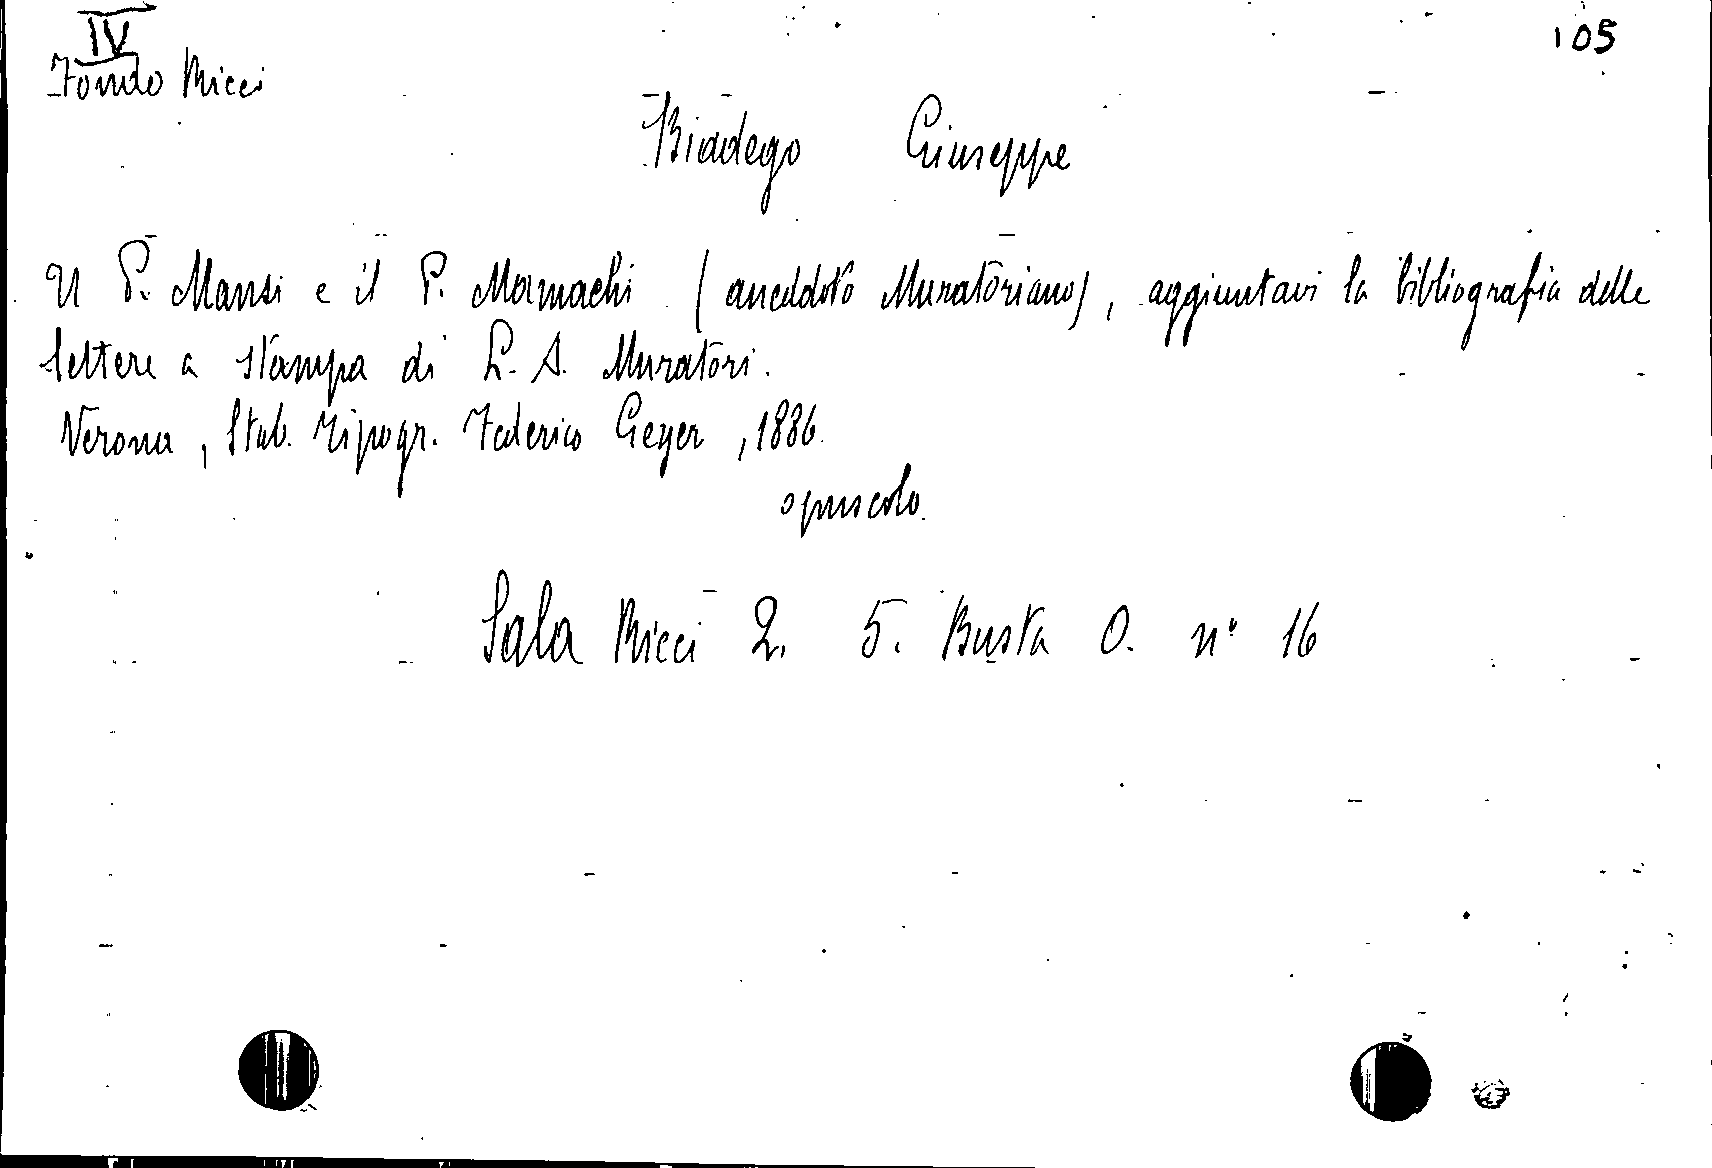 IV
Fondo Ricci
105
Biadego Giuseppe
Il P. Mansi e il P. Mamachi (aneddoto Muratoriano), aggiuntavi la bibliografia delle
lettere a stampa di L. A. Muratori.
Verona, Stab. Tipogr. Federico Geyer, 1886.
opuscolo.
Sala Ricci 2. 5. Busta O. n° 16